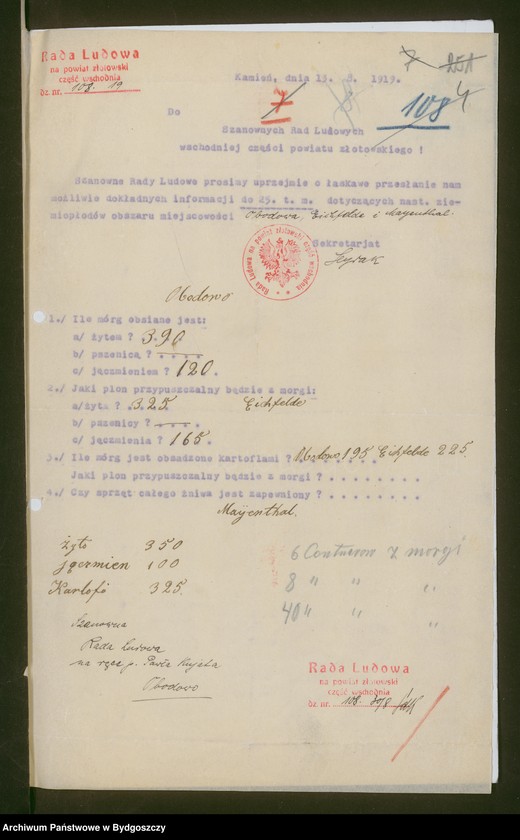 Rada Ludowa
na powiat złotowski
część wschodnia
dz. nr. 108. 19
7 251
4
Kamień, dnia 13. 8. 1919.
7 8 108
Do
Szanownych Rad Ludowych
wschodniej części powiatu złotowskiego !
Szanowne Rady Ludowe prosimy uprzejmie o łaskawe przesłanie nam
możliwie dokładnych informacji do 25. t. m. dotyczących nast. zie-
miopłodów obszaru miejscowości Obodowa, Eichfelde i Mayenthal.
Sekretarjat
Rada Ludowa na powiat złotowski część wschodnia
Obodowo
1./ Ile mórg obsiane jest:
a/ żytem ? 390
b/ pszenicą ? . . . .
c/ jęczmieniem ? 120.
2./ Jaki plon przypuszczalny będzie z morgi:
a/żyta ? 325. Eichfelde
b/ pszenicy ? . . . .
c/ jęczmienia ? 165.
3./ Ile mórg jest obsadzone kartoflami ? Obodowo 195 Eichfelde 225.
Jaki plon przypuszczalny będzie z morgi ? . . . . . . . .
4./ Czy sprzęt całego żniwa jest zapewniony ? . . . . . . . .
Mayenthal.
Żyto 350
jęczmien 100
Kartofo 325.
6 Centnerow z morgi
8 " " "
40 " " "
Szanowna
Rada Ludowa
na ręce p. Pawła
Obodowo
Rada Ludowa
na powiat złotowski
część wschodnia
dz. nr. 108.
Archiwum Państwowe w Bydgoszczy